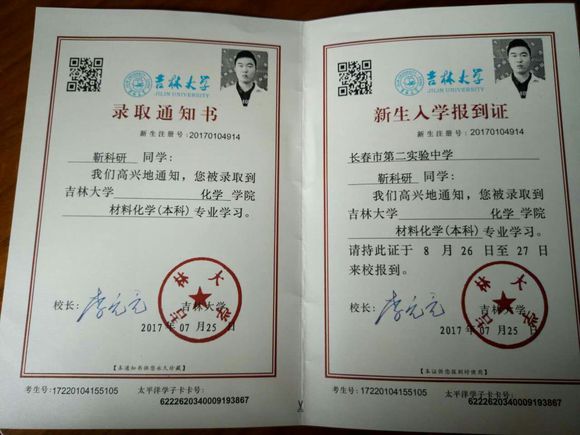 吉林大学
JILIN UNIVERSITY
录取通知书
新生注册号:20170104914
靳科研 同学:
我们高兴地通知,您被录取到
吉林大学 化学 学院
材料化学(本科)专业学习。
校长: 李元元 吉林大学
2017 年 07 月 25 日
【本通知书供您永久珍藏】
考生号:17220104155105 太平洋学子卡卡号:
6222620340009193867
吉林大学
JILIN UNIVERSITY
新生入学报到证
新生注册号:20170104914
长春市第二实验中学
靳科研 同学:
我们高兴地通知,您被录取到
吉林大学 化学 学院
材料化学(本科)专业学习。
请持此证于 8 月 26 日至 27 日
来校报到。
校长: 李元元 吉林大学
2017 年 07 月 25 日
【本证供您报到时使用】
考生号:17220104155105 太平洋学子卡卡号:
6222620340009193867